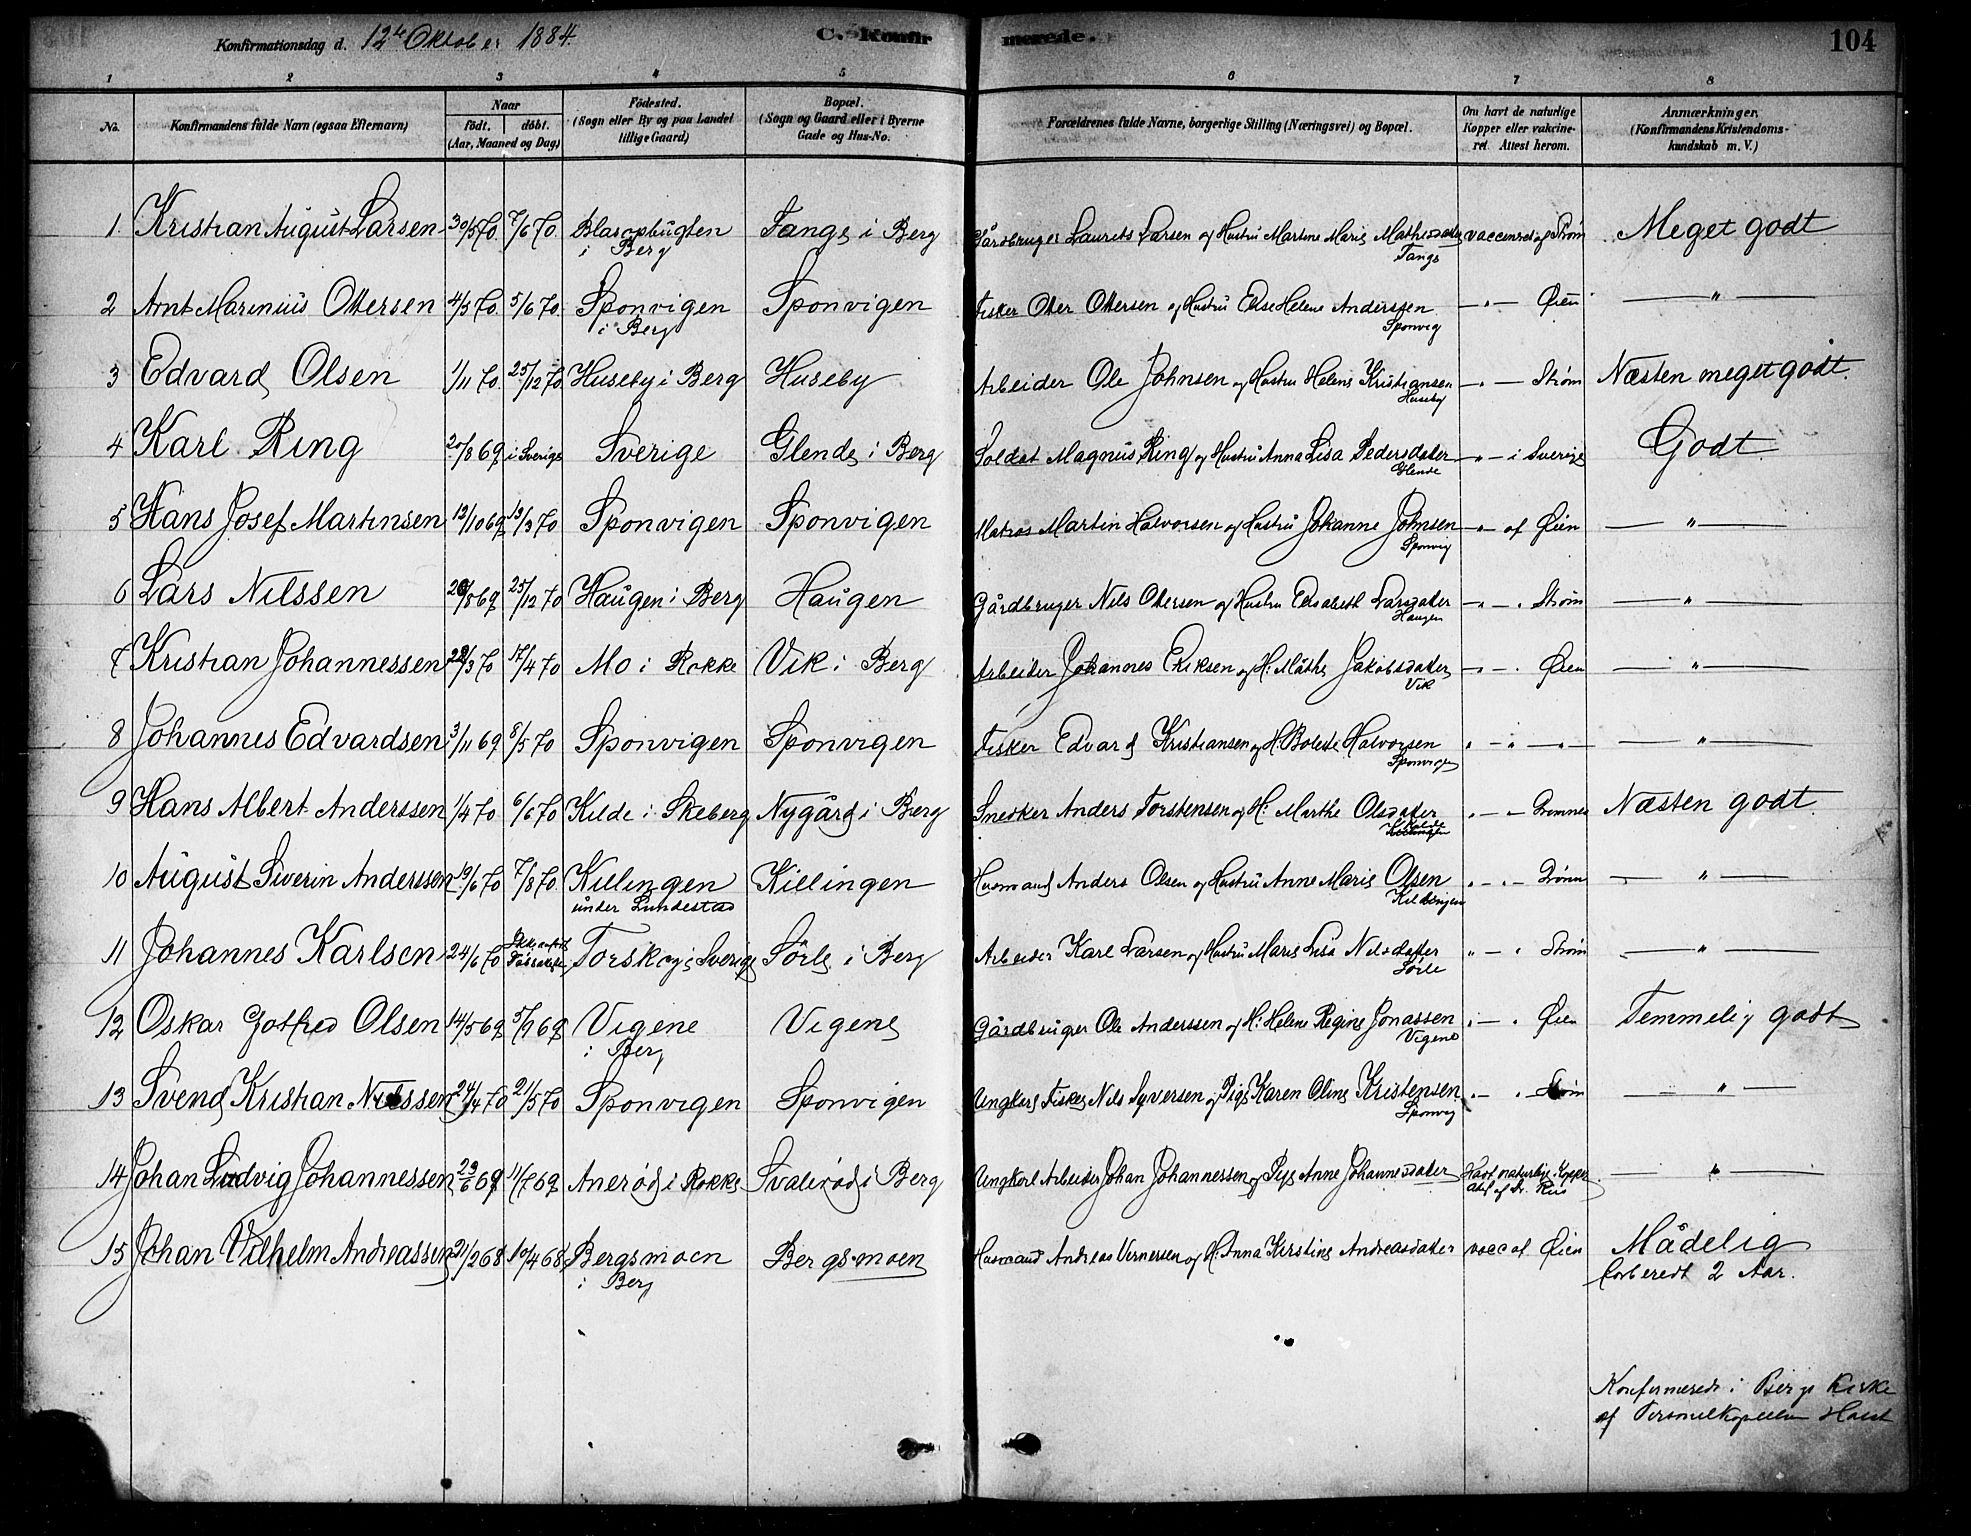 Konfirmationsdag d. 12te Oktober 1884.
C. Konfirmerede.
104
1 2 3 4 5 6 7 8
No.
Konfirmandens fulde Navn (ogsaa Efternavn)
Naar
født. døbt.
(Aar, Maaned og Dag)
Fødested.
(Sogn eller By og paa Landet
tillige Gaard)
Bopæl.
(Sogn og Gaard eller i Byerne
Gade og Hus-No.
Forældrenes fulde Navne, borgerlige Stilling (Næringsvei) og Bopæl.
Om havt de naturlige
Kopper eller vakcine-
ret. Attest herom.
Anmærkninger.
(Konfirmandens Kristendoms-
kundskab m. V.)
1. Kristian August Larsen 30/5 70. 7/6 70. i Berg Tange i Berg Gårdbruger Laurits Larsen og Hustru Martine Marie Mathisdatter Tange vaccineret af Strøm Meget godt
2 Arnt Marenius Ottersen 4/5 70. 5/6 70. Sponvigen i Berg Sponvigen Fisker Otter Ottersen og Hustru Else Helene Anderssen Sponvig — " — Øien — " —
3 Edvard Olsen 1/11 70. 25/12 70 Huseby i Berg Huseby Arbeider Ole Johnsen og Hustru Helene Kristiansen Huseby — " — Strøm Næsten meget godt.
4 Karl Ring 20/8 69 i Sverige Sverige Glende i Berg Soldat Magnus Ring og Hustru Anna Lisa Pedersdatter Glende — " — i Sverige Godt
5 Hans Josef Martinsen 12/10 69 13/3 70 Sponvigen Sponvigen Matros Martin Halvorsen og Hustru Johanne Johnsen Sponvig — " — af Øien — " —
6 Lars Nilssen 20/8 69 25/12 70 Haugen i Berg Haugen Gårdbruger Nils Ottersen og Hustru Elisabeth Larsdatter Haugen — " — " Strøm — " —
7 Kristian Johannessen 28/3 70 17/4 70 Mo i Rokke Vik i Berg Arbeider Johannes Eriksen og H: Mathe Jakobsdatter Vik — " — " Øien — " —
8 Johannes Edvardsen 3/11 69 8/5 70 Sponvigen Sponvigen Fisker Edvard Kristiansen og H. Bolette Halvorsen Sponvigen " — " — " — — " —
9 Hans Albert Anderssen 1/4 70 6/6 70 Kilde i Skeberg Nygård i Berg Snedker Anders Torstensen og H: Marthe Olsdatter " — " — Næsten godt.
10 August Siverin Anderssen 19/6 70 7/8 70. Killingen under Lundestad Killingen Husmand Anders Olsen og Hustru Anne Marie Olsen Killingen " — " — — " —
11 Johannes Karlsen 24/6 70 Torskog i Sverige Sørle i Berg Arbeider Karl Larsen og Hustru Marie Lisa Nilsdatter Sørle " — " Strøm — " —
12 Oskar Gotfred Olsen 14/5 69 5/9 69 Vigene i Berg Vigene Gårdbruger Ole Anderssen og H: Helene Regine Jonassen Vigene " — " Øien Temmelig godt
13 Svend Kristian Nilssen 24/4 70 21/5 70 Sponvigen Sponvigen Ungkarl Fisker Nils Syversen og Pige Karen Oline Kristensen Sponvig " — " Strøm — " —
14 Johan Ludvig Johannessen 23/6 69 11/7 69 Anerød i Rokke Svalerød i Berg Ungkarl Arbeider Johan Johannessen og Pige Anne Johannesdatter Havt naturlige Kopper af Dr. — " —
15 Johan Vilhelm Andreassen 21/2 68 10/4 68 Bergsmoen i Berg Bergsmoen Husmand Andreas Vernersen og H. Anna Kirstine Andreasdatter vacc af Øien Mådelig
forberedt 2 Aar.
Konfirmerede i Bergs Kirke
af Personelkapellan